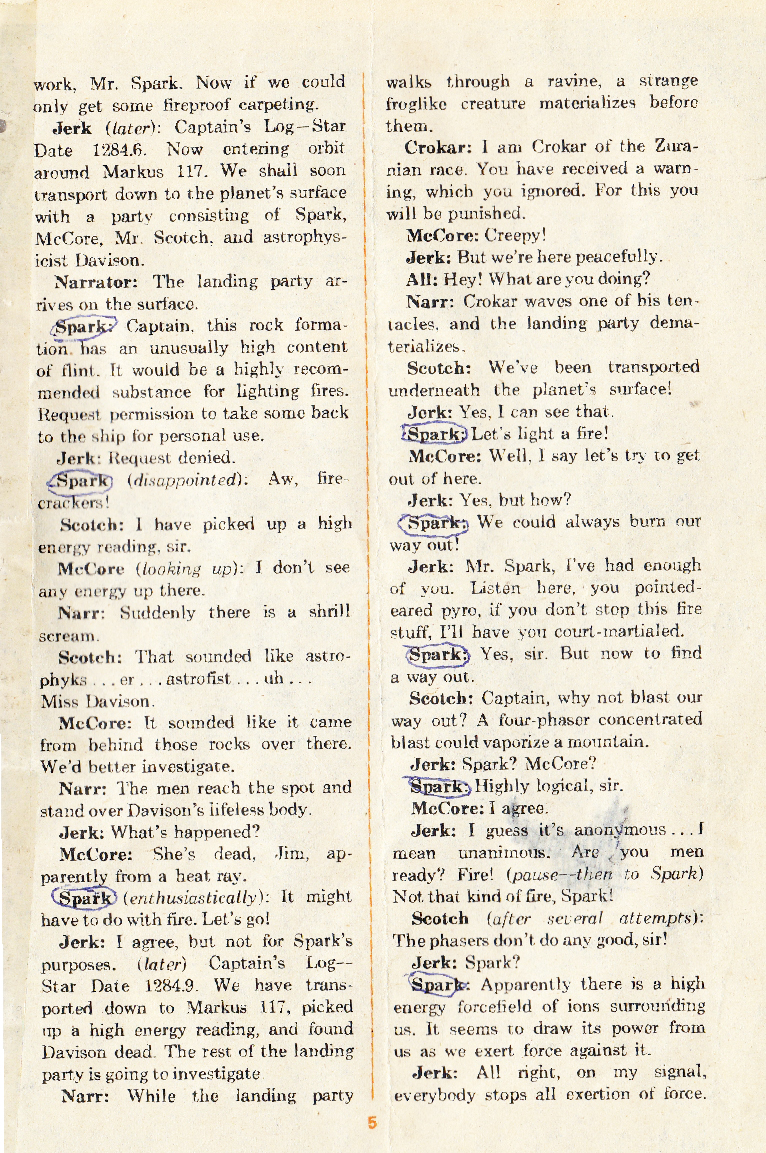 work, Mr. Spark. Now if we could
only get some fireproof carpeting.
Jerk (later): Captain's Log—Star
Date 1284.6. Now entering orbit
around Markus 117. We shall soon
transport down to the planet's surface
with a party consisting of Spark,
McCore, Mr. Scotch, and astrophys-
icist Davison.
Narrator: The landing party ar-
rives on the surface.
Spark: Captain, this rock forma-
tion has an unusually high content
of flint. It would be a highly recom-
mended substance for lighting fires.
Request permission to take some back
to the ship for personal use.
Jerk: Request denied.
Spark (disappointed): Aw, fire-
crackers!
Scotch: I have picked up a high
energy reading, sir.
McCore (looking up): I don't see
any energy up there.
Narr: Suddenly there is a shrill
scream.
Scotch: That sounded like astro-
phyks . . . er . . . astrofist . . . uh . . .
Miss Davison.
McCore: It sounded like it came
from behind those rocks over there.
We'd better investigate.
Narr: The men reach the spot and
stand over Davison's lifeless body.
Jerk: What's happened?
McCore: She's dead, Jim, ap-
parently from a heat ray.
Spark (enthusiastically): It might
have to do with fire. Let's go!
Jerk: I agree, but not for Spark's
purposes. (later) Captain's Log—
Star Date 1284.9. We have trans-
ported down to Markus 117, picked
up a high energy reading, and found
Davison dead. The rest of the landing
party is going to investigate
Narr: While the landing party
walks through a ravine, a strange
froglike creature materializes before
them.
Crokar: I am Crokar of the Zura-
nian race. You have received a warn-
ing, which you ignored. For this you
will be punished.
McCore: Creepy!
Jerk: But we're here peacefully.
All: Hey! What are you doing?
Narr: Crokar waves one of his ten-
tacles, and the landing party dema-
terializes.
Scotch: We've been transported
underneath the planet's surface!
Jerk: Yes, I can see that.
Spark: Let's light a fire!
McCore: Well, I say let's try to get
out of here.
Jerk: Yes, but how?
Spark: We could always burn our
way out!
Jerk: Mr. Spark, I've had enough
of you. Listen here, you pointed-
eared pyro, if you don't stop this fire
stuff, I'll have you court-martialed.
Spark: Yes, sir. But now to find
a way out.
Scotch: Captain, why not blast our
way out? A four-phaser concentrated
blast could vaporize a mountain.
Jerk: Spark? McCore?
Spark: Highly logical, sir.
McCore: I agree.
Jerk: I guess it's anonymous . . . I
mean unanimous. Are you men
ready? Fire! (pause—then to Spark)
Not that kind of fire, Spark!
Scotch (after several attempts):
The phasers don't do any good, sir!
Jerk: Spark?
Spark: Apparently there is a high
energy forcefield of ions surrounding
us. It seems to draw its power from
us as we exert force against it.
Jerk: All right, on my signal,
everybody stops all exertion of force.
5